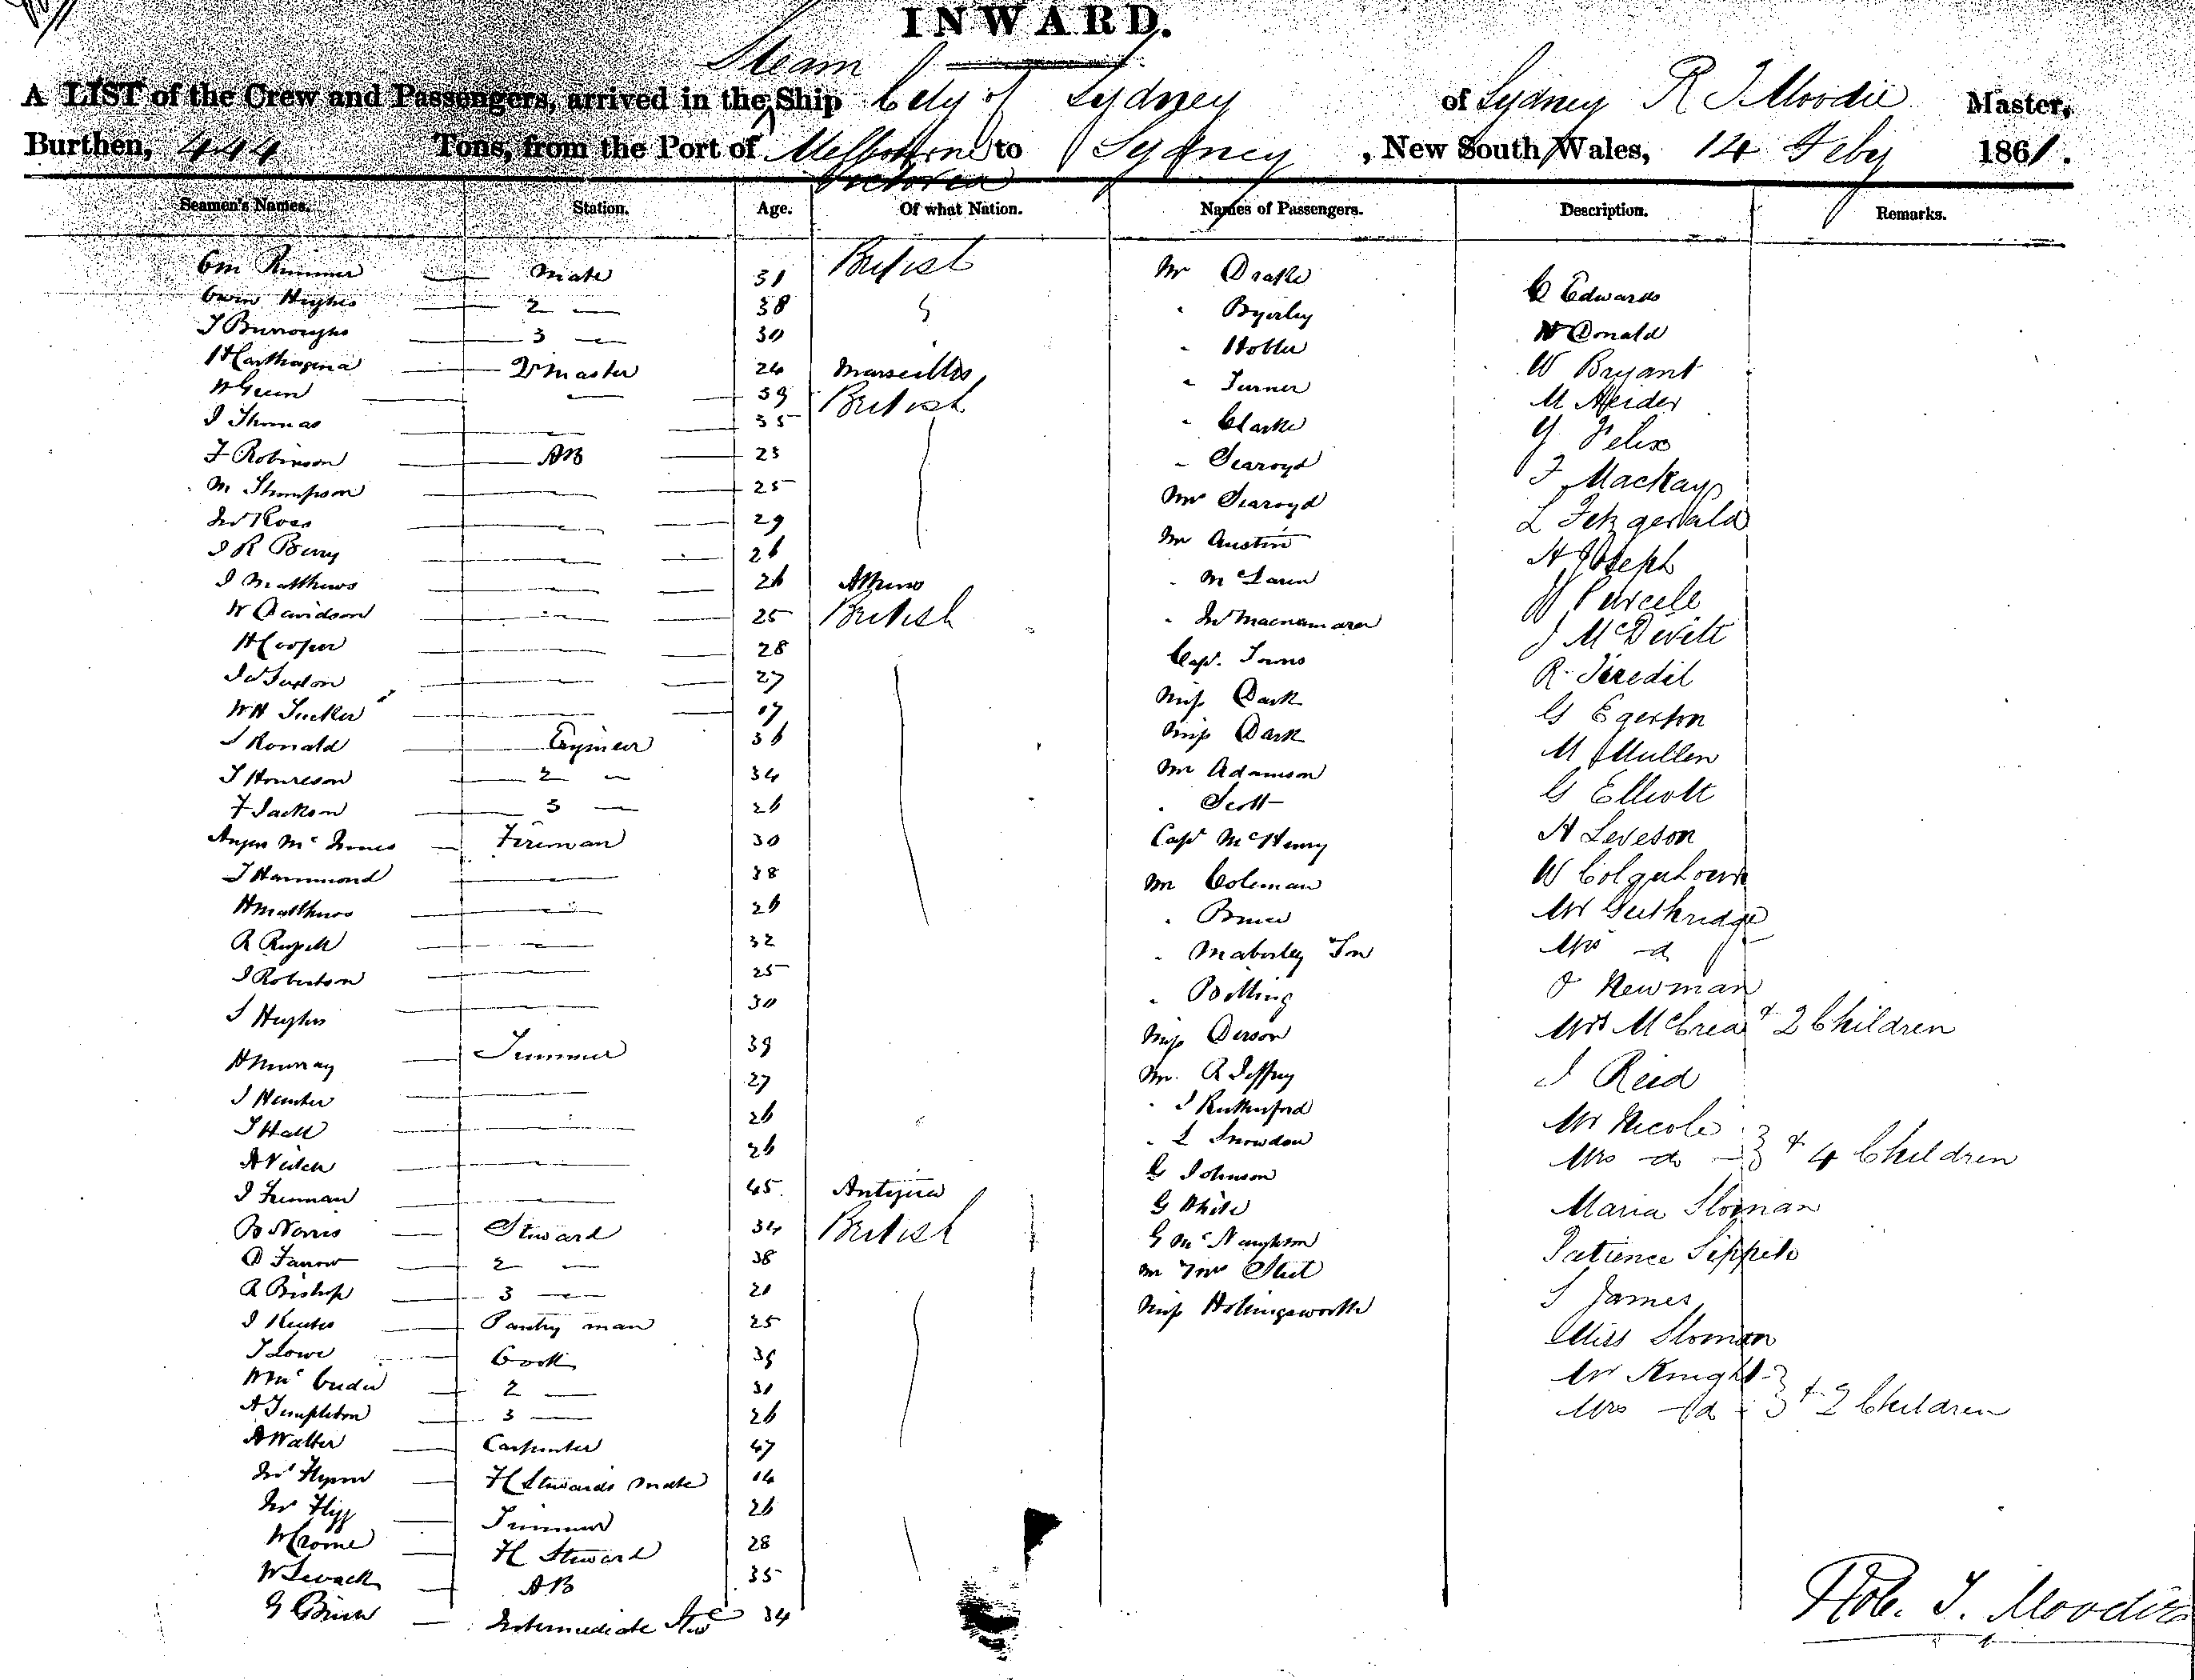 INWARD.
Steam
A LIST of the Crew and Passengers, arrived in the Ship City of Sydney of Sydney R T Moodie Master,
Burthen, 444 Tons, from the Port of Melbourne to Sydney, New South Wales, 14 Feby 1861.
Victoria
Seamen's Names. Station. Age. Of what Nation. Names of Passengers. Description. Remarks.
Rimmer Mate 31 British Mr Drake C Edwards
Owen Hughes 2 — 38 " Byerley Donald
T Burroughs 3 — 30 " W Bryant
H Carthagena Qr master 24 Marseilles " Turner M Heider
W Green — 39 British " Clarke G Felix
J Thomas 35 " Searoyd F Mackay
F Robinson AB 23 Mrs Searoyd L Fitzgerald
M Thompson 25 Mr Austin H Joseph
Jno Ross 29 " McLaren Purcele
J R Berry 26 " Jno Macnamara J McDevitt
J Matthews 26 Athens Capt. Towns R
W Davidson 25 British Miss Dark G Egerton
H Cooper 28 Miss Dark M Mullen
27 Mr Adamson G Elliott
W H Tucker 17 " Scott H Leveson
J Ronald Engineer 36 Capt McHenry W Colquhoun
T Houreson 2 — 34 Mr Coleman Mr Guthridge
F Jackson 3 — 26 " Bruce Mrs -d
Angus McInnes Fireman 30 " Maberley Jno Newman
T Hammond 38 " Billing Mrs McCrea + 2 Children
H Matthews 26 Miss J Reid
R Russell 32 Mr. R Jeffrey Mr Nicole
J Robertson 25 " J Rutherford Mrs do } + 4 Children
S Hughes 30 " L Snowdon Maria Sloman
H Murray Trimmer 39 G Johnson Patience
J Hunter 27 G White S James
T Hall 26 G McNaughton Miss Sloman
A Veitch 26 Mr Mrs Mr Knight
J Freeman 45 Antigua Miss Hollingsworth Mrs -d } + 2 Children
B Norris Steward 34 British
D Farrow 2 — 38
R Bishop 3 — 20
J Pantry man 25
T Lowe Cook 39
2 — 31
A Templeton 3 — 26
A Walter Carpenter 47
Jno Flynn H Stewards Mate 14
Jno Trimmer 26
W Crome H Steward 28
W Levack AB 35
G Intermediate Stwd 34
Rob. T. Moodie